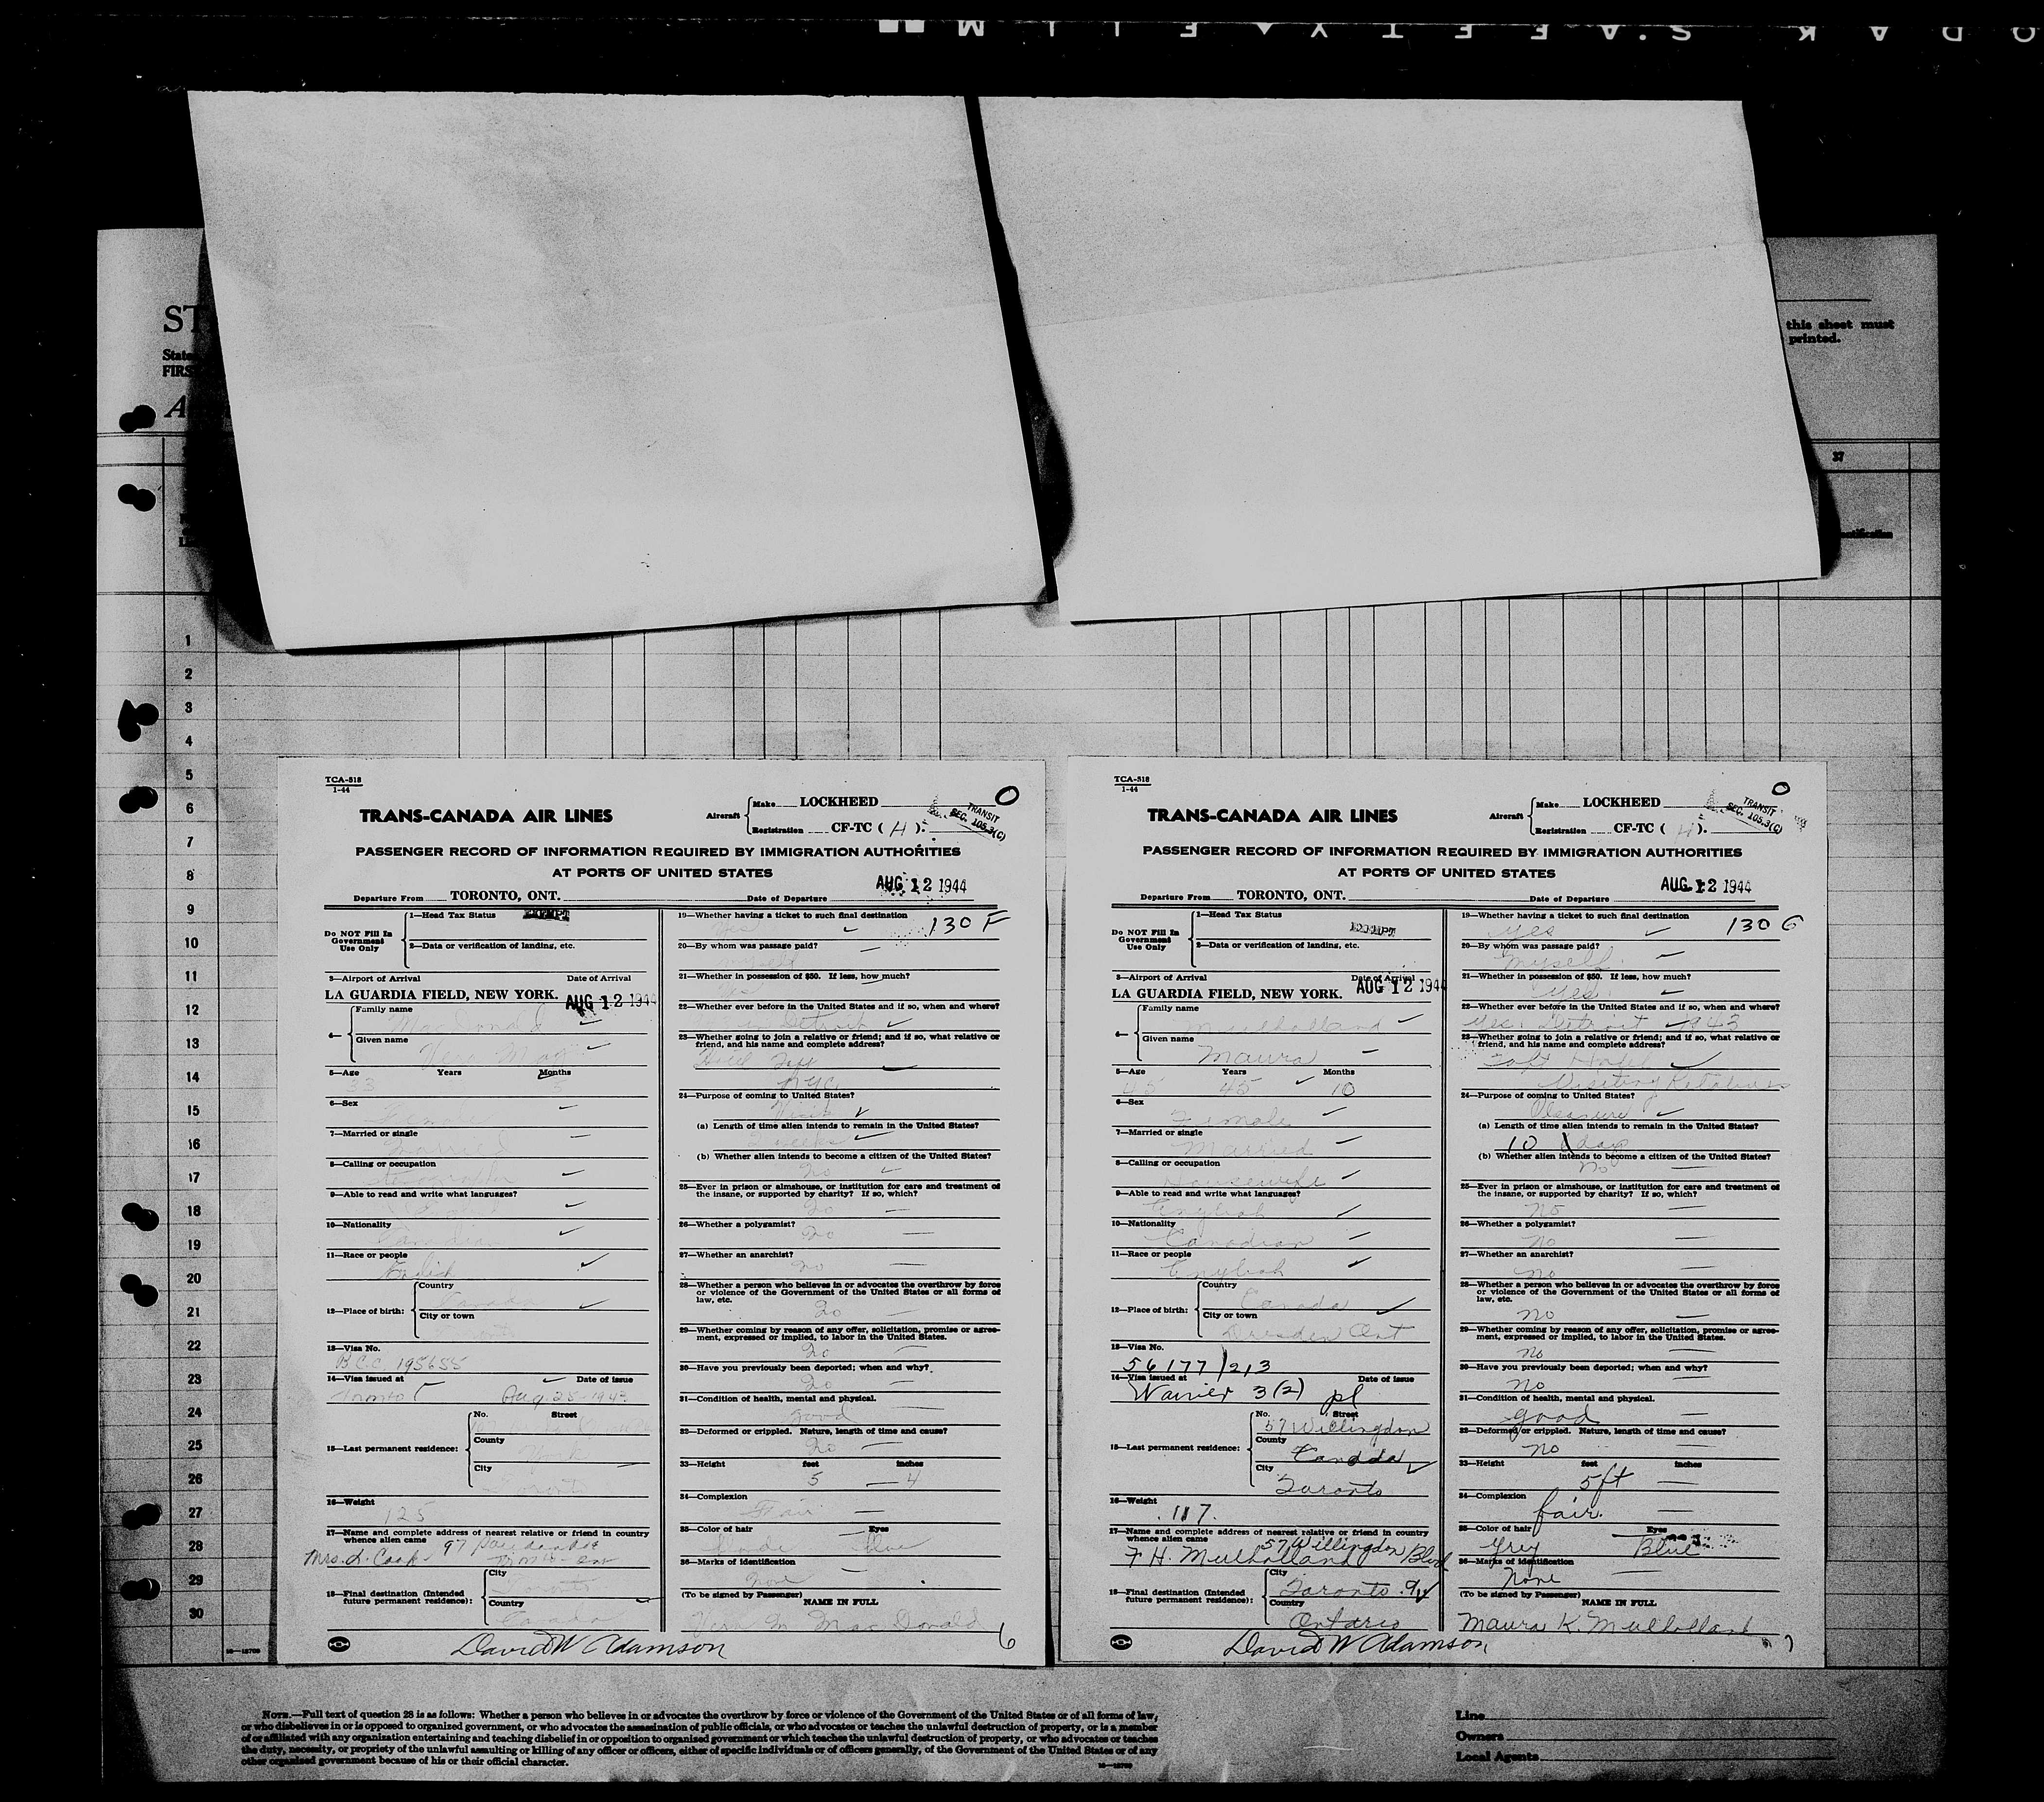 KODAK SAFETY FILM
ST
State
FIRS
A
this sheet must
printed.
37
1
2
3
4
5
6
7
8
9
10
11
12
13
14
15
16
17
18
19
20
21
22
23
24
25
26
27
28
29
30
TCA-518
1-44
TRANS-CANADA AIR LINES
Aircraft
Make LOCKHEED
Registration CF-TC ( H ).
O
TRANSIT
SEC. 105.3(C)
PASSENGER RECORD OF INFORMATION REQUIRED BY IMMIGRATION AUTHORITIES
AT PORTS OF UNITED STATES
AUG 12 1944
Departure From TORONTO, ONT. Date of Departure
Do NOT Fill In Government Use Only
1—Head Tax Status EXEMPT
2—Data or verification of landing, etc.
3—Airport of Arrival Date of Arrival
LA GUARDIA FIELD, NEW YORK. AUG 12 1944
4— Family name MacDonald
Given name Vera May
5—Age Years Months
6—Sex
7—Married or single Married
8—Calling or occupation
9—Able to read and write what languages? English
10—Nationality Canadian
11—Race or people English
12—Place of birth: Country Canada
City or town
13—Visa No.
B.C.C. 195655
14—Visa issued at Date of issue
Toronto Aug 25-1943
15—Last permanent residence: No. Street
County York
City Toronto
16—Weight
125
17—Name and complete address of nearest relative or friend in country
whence alien came
Mrs. L. Cook 97
18—Final destination (Intended
future permanent residence): City Toronto
Country Canada
19—Whether having a ticket to such final destination
Yes 130 F
20—By whom was passage paid?
myself
21—Whether in possession of $50. If less, how much?
Yes
22—Whether ever before in the United States and if so, when and where?
in Detroit
23—Whether going to join a relative or friend; and if so, what relative or
friend, and his name and complete address?
Hotel Taft
N.Y.C.
24—Purpose of coming to United States?
Visit
(a) Length of time alien intends to remain in the United States?
2 weeks
(b) Whether alien intends to become a citizen of the United States?
No
25—Ever in prison or almshouse, or institution for care and treatment of
the insane, or supported by charity? If so, which?
No
26—Whether a polygamist?
No
27—Whether an anarchist?
No
28—Whether a person who believes in or advocates the overthrow by force
or violence of the Government of the United States or all forms of
law, etc.
No
29—Whether coming by reason of any offer, solicitation, promise or agree-
ment, expressed or implied, to labor in the United States.
No
30—Have you previously been deported; when and why?
No
31—Condition of health, mental and physical.
good
32—Deformed or crippled. Nature, length of time and cause?
No
33—Height feet inches
5 4
34—Complexion
Fair
35—Color of hair Eyes
blonde blue
36—Marks of identification
none
(To be signed by Passenger)
NAME IN FULL
Vera M. MacDonald
David W Adamson
6
TCA-518
1-44
TRANS-CANADA AIR LINES
Aircraft
Make LOCKHEED
Registration CF-TC ( H ).
O
TRANSIT
SEC. 105.3(C)
PASSENGER RECORD OF INFORMATION REQUIRED BY IMMIGRATION AUTHORITIES
AT PORTS OF UNITED STATES
AUG 12 1944
Departure From TORONTO, ONT. Date of Departure
Do NOT Fill In Government Use Only
1—Head Tax Status
EXEMPT
2—Data or verification of landing, etc.
3—Airport of Arrival Date of Arrival
LA GUARDIA FIELD, NEW YORK. AUG 12 1944
4— Family name Mulholland
Given name Maura
5—Age Years Months
45 45 10
6—Sex
Female
7—Married or single
Married
8—Calling or occupation
Housewife
9—Able to read and write what languages?
English
10—Nationality
Canadian
11—Race or people
English
12—Place of birth: Country Canada
City or town Dresden Ont
13—Visa No.
56177/213
14—Visa issued at Date of issue
Waiver 3(2) pl
15—Last permanent residence: No. Street
57 Willingdon
County Canada
City Toronto
16—Weight
117.
17—Name and complete address of nearest relative or friend in country
whence alien came
57 Willingdon Blvd
F. H. Mulholland
18—Final destination (Intended
future permanent residence): City Toronto
Country Ontario
19—Whether having a ticket to such final destination
yes 130 G
20—By whom was passage paid?
Myself
21—Whether in possession of $50. If less, how much?
yes
22—Whether ever before in the United States and if so, when and where?
Yes. Detroit 1943
23—Whether going to join a relative or friend; and if so, what relative or
friend, and his name and complete address?
Taft Hotel
Visiting Relatives
24—Purpose of coming to United States?
Pleasure
(a) Length of time alien intends to remain in the United States?
10 days
(b) Whether alien intends to become a citizen of the United States?
No
25—Ever in prison or almshouse, or institution for care and treatment of
the insane, or supported by charity? If so, which?
No
26—Whether a polygamist?
No
27—Whether an anarchist?
No
28—Whether a person who believes in or advocates the overthrow by force
or violence of the Government of the United States or all forms of
law, etc.
No
29—Whether coming by reason of any offer, solicitation, promise or agree-
ment, expressed or implied, to labor in the United States.
No
30—Have you previously been deported; when and why?
No
31—Condition of health, mental and physical.
good
32—Deformed or crippled. Nature, length of time and cause?
No
33—Height feet inches
5 ft
34—Complexion
fair.
35—Color of hair Eyes
Grey Blue
36—Marks of identification
None
(To be signed by Passenger)
NAME IN FULL
Maura K. Mulholland
David W Adamson
7
NOTE.—Full text of question 28 is as follows: Whether a person who believes in or advocates the overthrow by force or violence of the Government of the United States or of all forms of law,
or who disbelieves in or is opposed to organized government, or who advocates the assassination of public officials, or who advocates or teaches the unlawful destruction of property, or is a member
of or affiliated with any organization entertaining and teaching disbelief in or opposition to organized government or which teaches the unlawful destruction of property, or who advocates or teaches
the duty, necessity, or propriety of the unlawful assaulting or killing of any officer or officers, either of specific individuals or of officers generally, of the Government of the United States or of any
other organized government because of his or their official character.
Line
Owners
Local Agents